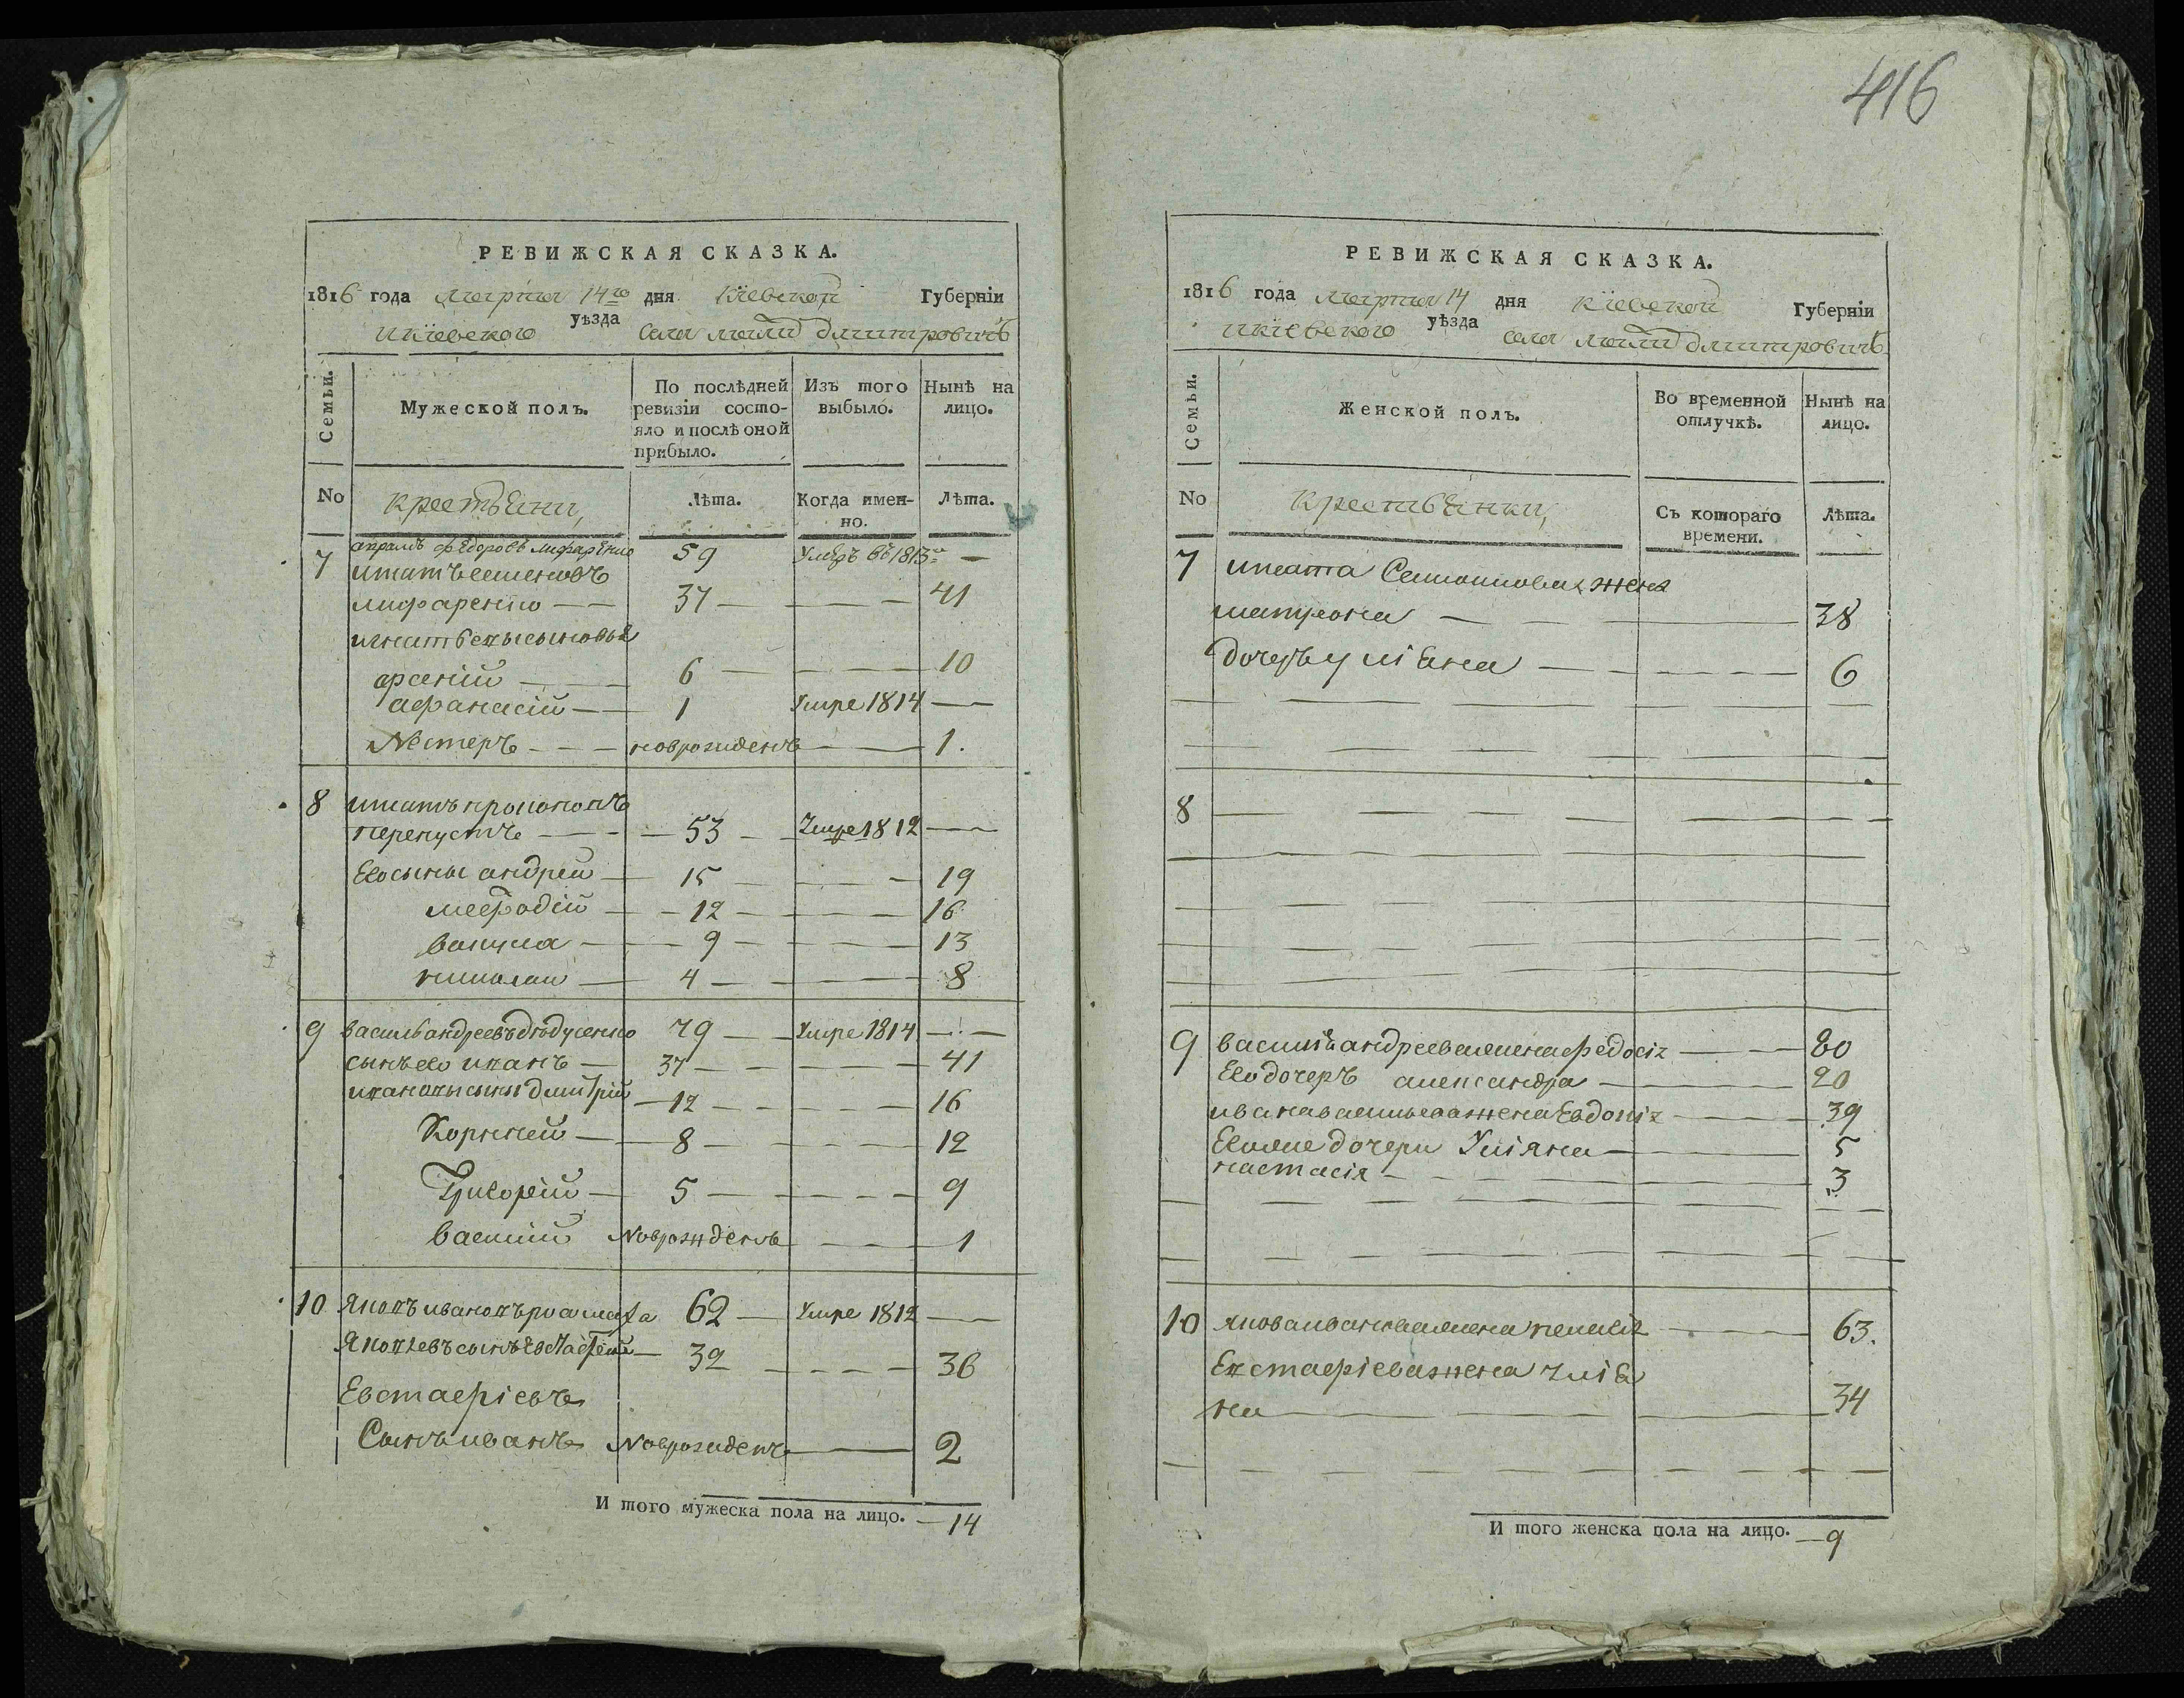 416
РЕВИЖСКАЯ СКАЗКА.
1816 года марта 14го дня Кїевской Губернїи
и кїевского уѣзда села малй дмитровичъ
Семьи.
Мужеской полъ.
По послѣдней ревизїи состо-
яло и послѣ оной
прибыло.
Изъ того выбыло.
Нынѣ на лицо.
No крестьяни, Лѣта. Когда имен-
но. Лѣта.
7 федоровъ 59 Умеръ въ 1813 —
игнатъ семеновъ
37 — — 41
игнатьевы сыновья
арсенїй — 6 — — 10
афанасїй — 1 Умре 1814 —
Nестеръ — новрожденъ — 1.
8 игнатъ прокоповъ
перепустъ — 53 — Умре 1812 —
Его сыны андрей — 15 — 19
мефодїй — 12 — 16
вакула — 9 — 13
николай — 4 — 8
9 василь андреевъ дѣдусенко 79 — Умре 1814 —
сынъ его иванъ — 37 — 41
ивановы сыны Дмитрїй — 12 — 16
Корнней — 8 — 12
Григорїй — 5 — 9
василий Nоврожденъ — 1
10 Яковъ ивановъ 62 — Умре 1812 —
Яковлевъ сынъ Евстафїй — 32 — 36
Евстафїевъ
Сынъ иванъ Nоврожденъ — 2
И того мужеска пола на лицо. — 14
РЕВИЖСКАЯ СКАЗКА.
1816 года марта 14 дня кїевской Губернїи
и кїевского уѣзда села малй дмитровичъ
Семьи.
Женской полъ.
Во временной отлучкѣ.
Нынѣ на лицо.
No крестьянки, Съ котораго
времени. Лѣта.
7 игната жена
матрона — 38
дочеръ улїяна — 6
8
9 василїя андреева жена федосїя — 80
Его дочеръ александра — 20
ивана васильева жена Евдокїя — 39
Его же дочери Улїяна — 5
настасїя — 3
10 якова иванова жена пелагїя — 63.
Евстафїева жена улїя
на — 34
И того женска пола на лицо. — 9